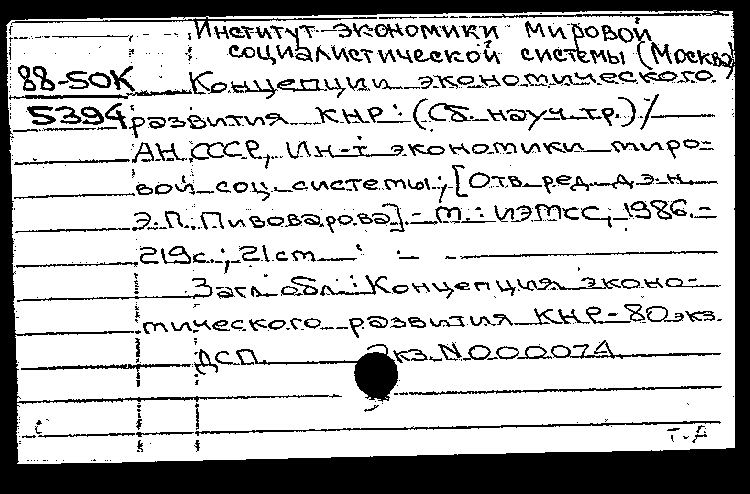 Институт экономики мировой
социалистической системы (Москва)
88-5ОК Концепции экономического
5394 развития КНР: (Сб. науч. тр.) /
АН СССР, Ин-т экономики миро-
вой соц. системы; [Отв. ред. д.э.н.
Э.П. Пивоварова]. - М.: ИЭМСС, 1986. -
219с.; 21cm
Загл. обл.: Концепция эконо-
мического развития КНР - 80экз.
ДСП. Экз. N000074.
Т.А